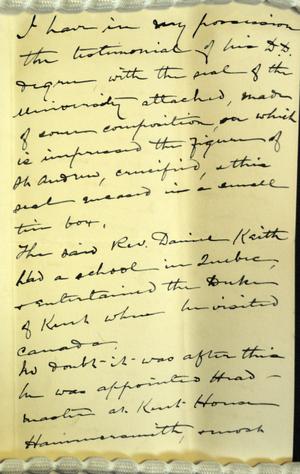 I have in my possession
the testimonial of his D.D.
Degree, with the seal of the
University attached, made
of some composition, on which
is impressed the figure of
St. Andrew, crucified, & this
seal encased in a small
tin box.
The said Rev. Daniel Keith
had a school in Quebec,
& entertained the Duke
of Kent when he visited
Canada.
No doubt it was after this
he was appointed Head-
master at Kent House
Hammersmith,